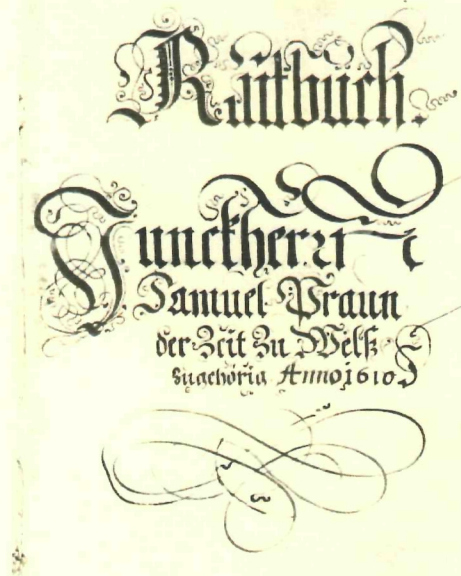 Raitbuch.
Junckherrn
Samuel Praun
der Zeit zu Welß
zugehörig Anno 1610